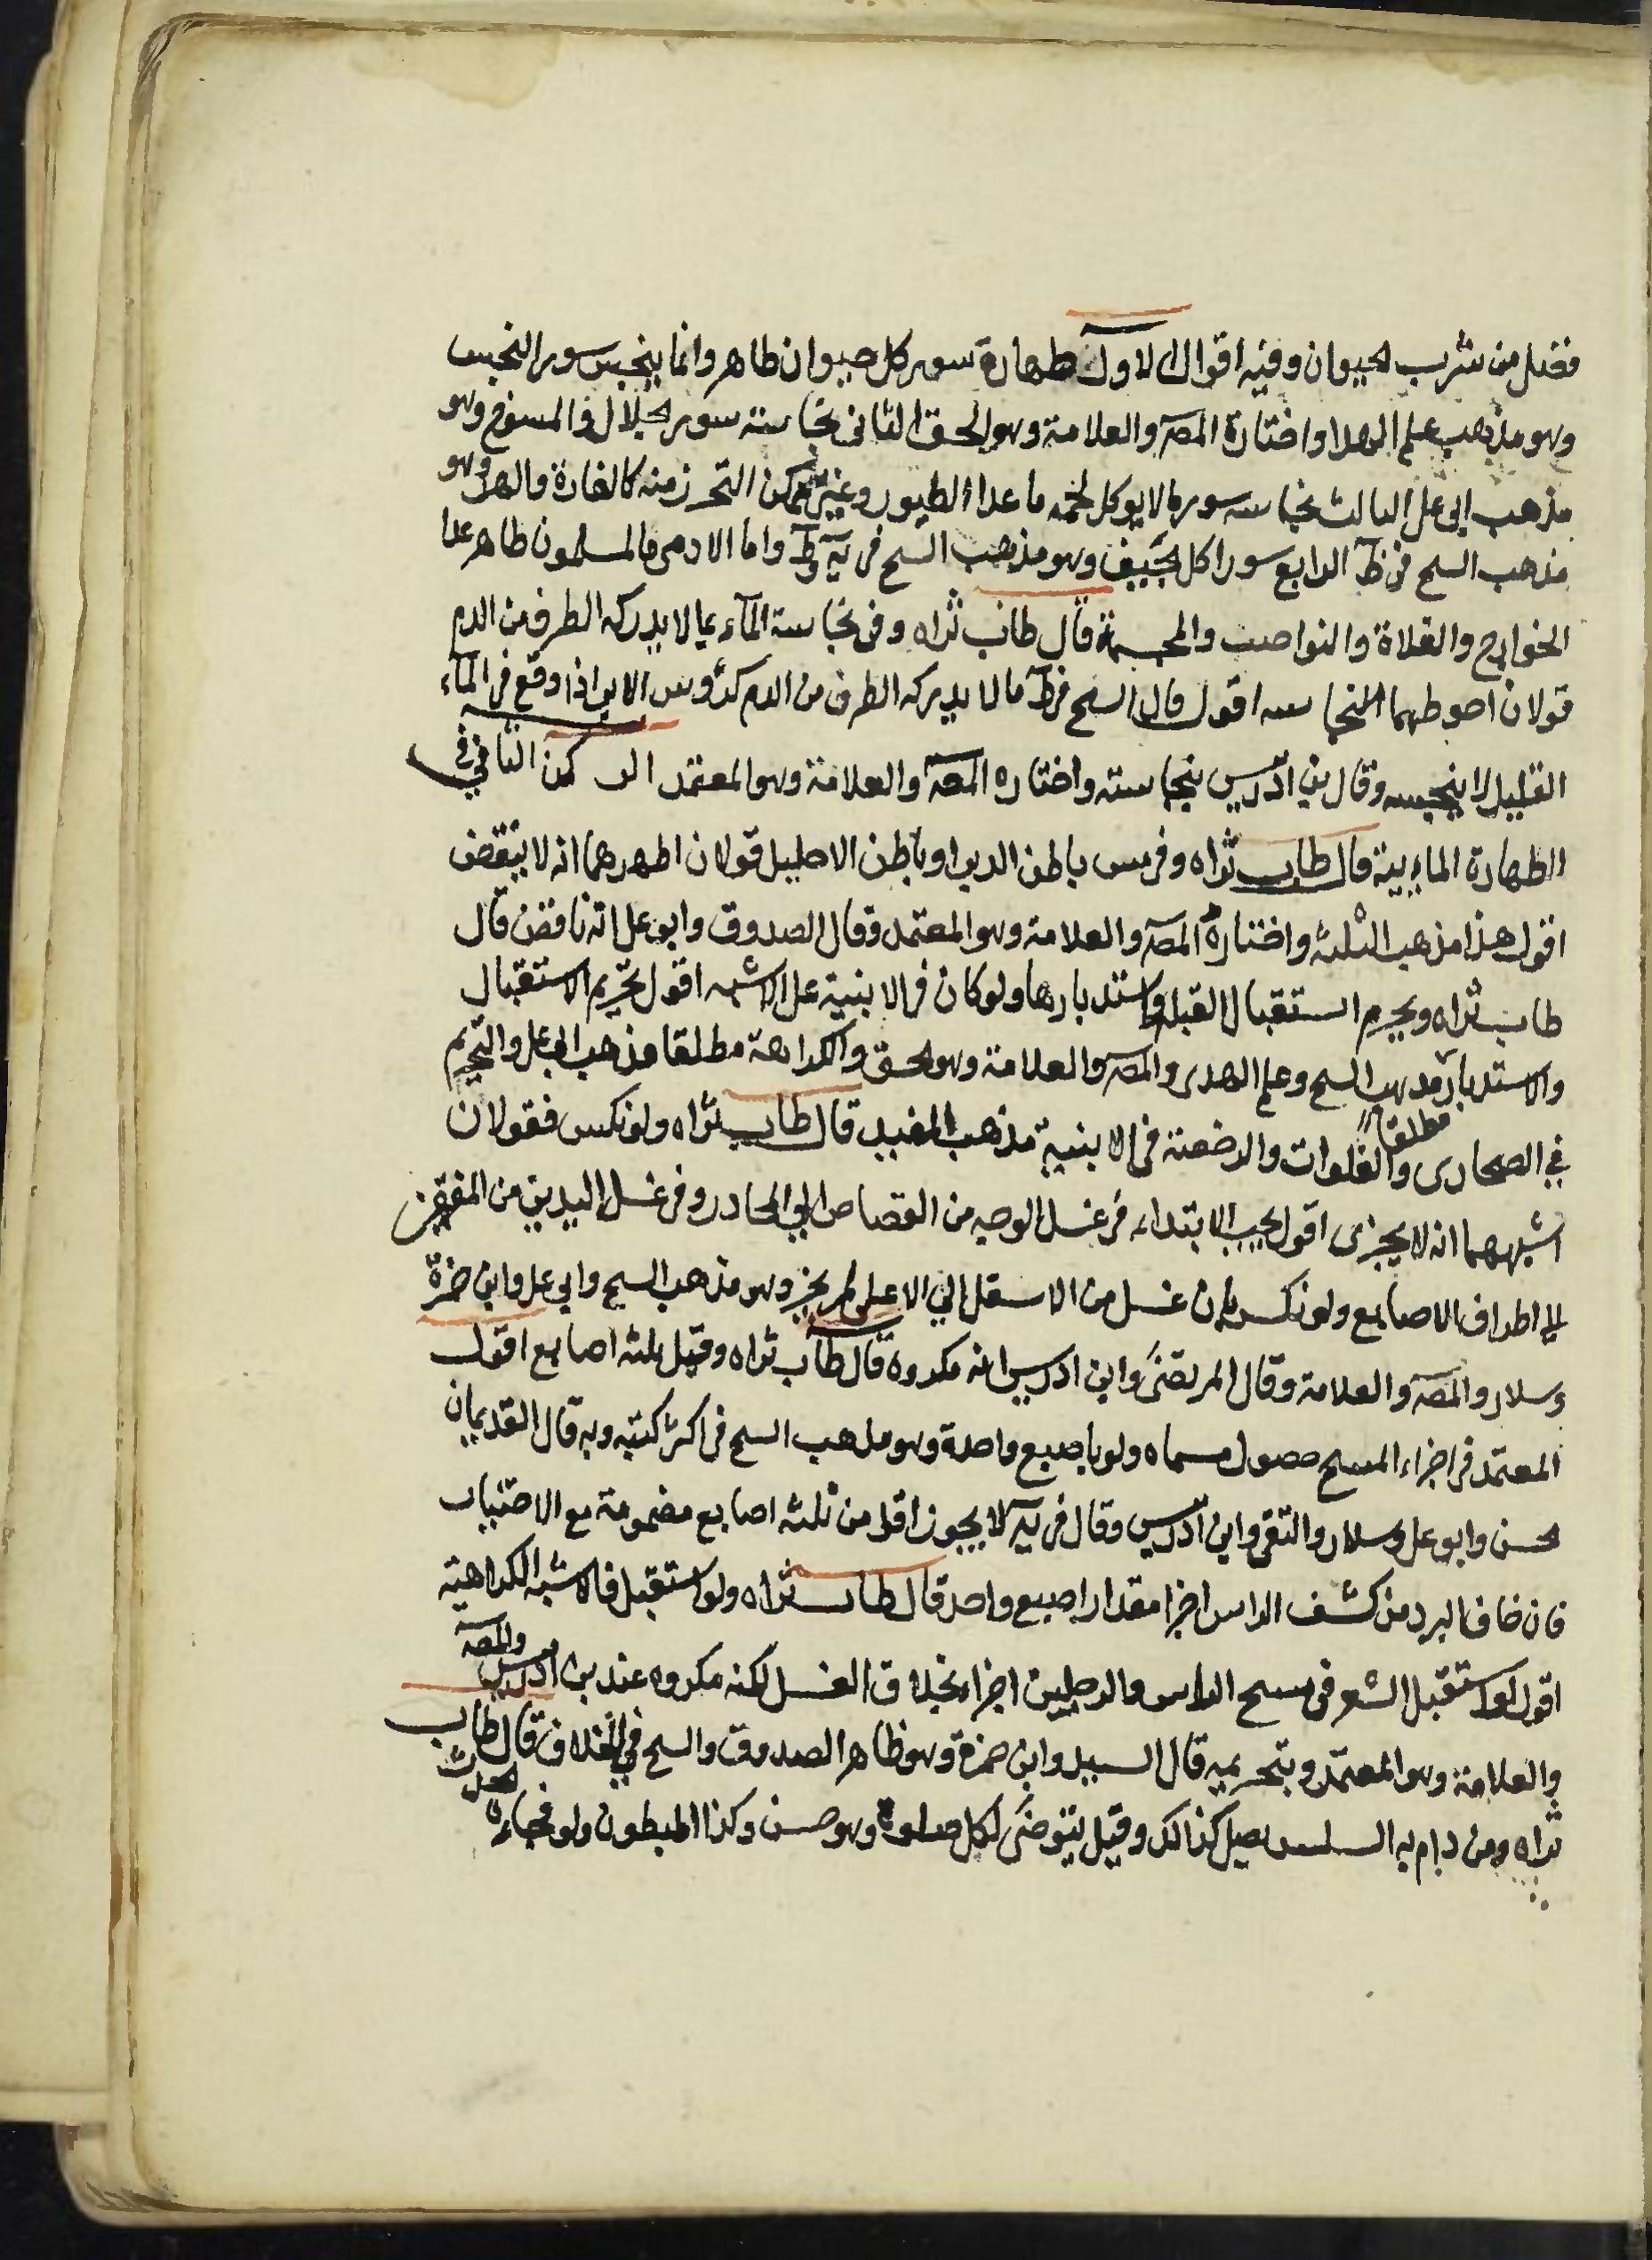 فضل من شرب الحيوان وفيه اقوال الاول طهارة سور كل حيوان طاهر وانما ينجس سور النجس
وهو مذهب علم الهدا واختاره المصه والعلامة وهو الحق الثانى نجاسته سور الجلال والمسوخ وهو
مذهب ابى على الثالث نجاسه سور ما لا يوكل لحمه ما عدا الطيور وغير ممكن التحرز منه كالفارة والهر وهو
مذهب السح فى ظ الرابع سور اكل الجيف وهو مذهب السح فى يه وط واما الادمى فالمسلمون طاهر عدا
الخوارج والغلاة والنواصب والمجسمة قال طاب ثراه وفى نجاسة المآء بما لا يدركه الطرف من الدم
قولان احوطهما النجاسه اقول قال السح فى ط ما لا يدركه الطرف من الدم كرؤس الابر اذا وقع فى المآء
القليل لا ينجسه وقال بن ادريس بنجاسته واختاره المصه والعلامة وهو المعتمد الركن الثانى فى
الطهارة المايية قال طاب ثراه وفى مس باطن الدبر او باطن الاحليل قولان اظهرهما انه لا ينقض
اقول هذا مذهب الثلثه واختاره المصه والعلامة وهو المعتمد وقال الصدوق وابو على انه ناقض قال
طاب ثراه ويحرم استقبال القبله واستدبارها ولو كان فى الابنية على الاشبه اقول تحريم الاستقبال
والاستدبار مذهب السح وعلم الهدى والمصه والعلامة وهو الحق والكراهة مطلقا مذهب ابى على والتحريم
مطلقا
في الصحارى والفلوات والرخصة فى الابنية مذهب المفيد قال طاب ثراه ولو نكس فقولان
اشبههما انه لا يجزى اقول يجب الابتداء فى غسل الوجه من القصاص الى المحادر وفى غسل اليدين من المرفقين
الى اطراف الاصابع ولو نكس بان غسل من الاسفل الي الاعلى لم يجز وهو مذهب السح وابى على وابن حمزة
وسلار والمصه والعلامة وقال المرتضى وابن ادريس انه مكروه قال طاب ثراه وقيل بثلثه اصابع اقول
المعتمد فى اجزاء المسح حصول مسماه ولو باصبع واحدة وهو مذهب السح فى اكثر كتبه وبه قال القديمان
الحسن وابو على وسلار والتقى وابن ادريس وقال فى يه لا يجوز اقل من ثلثه اصابع مضمومة مع الاختيار
فان خاف البرد من كشف الراس اجزا مقدار اصبع واحد قال طاب ثراه ولو استقبل فالاشبه الكراهية
اقول لو استقبل الشعر فى مسح الراس والرجلين اجزاء بخلاف الغسل لكنه مكروه عند بن ادريس والمصه
والعلامة وهو المعتمد وبتحريمه قال السيد وابن حمزة وهو ظاهر الصدوق والسح في الخلاف قال طاب
ثراه ومن دام به السلس يصلى كذالك وقيل يتوضى لكل صلوة وهو حسن وكذا المبطون ولو فجاءه الحدث